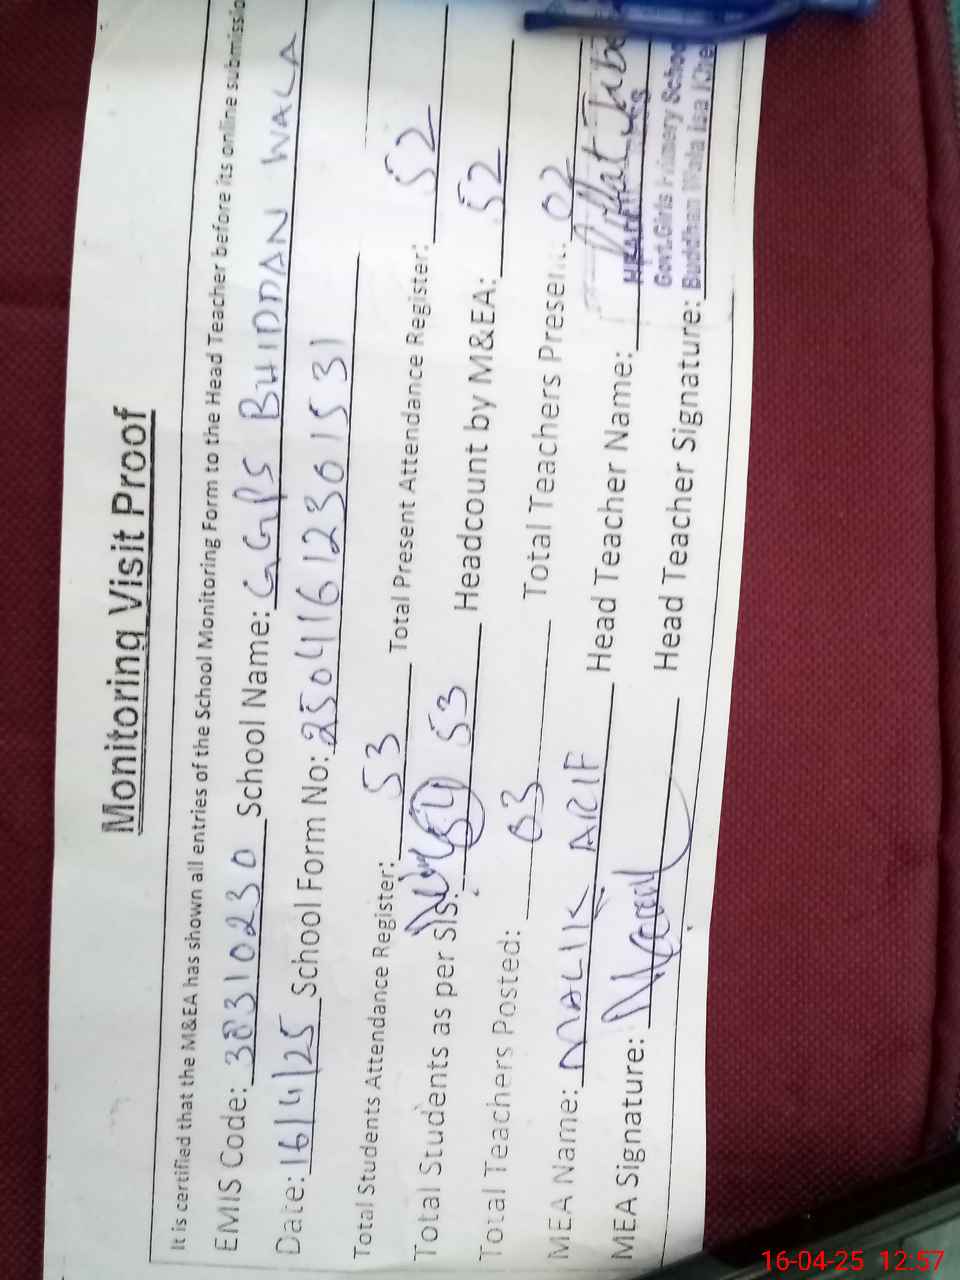 Monitoring Visit Proof
It is certified that the M&EA has shown all entries of the School Monitoring Form to the Head Teacher before its online submissio
EMIS Code: 38310230 School Name: GGPS BUIDDAN WALA
Date: 16/4/25 School Form No: 250416123015 31
Total Students Attendance Register: 53 Total Present Attendance Register: 52
Total Students as per SIS: 54 53 Headcount by M&EA: 52
Total Teachers Posted: 03 Total Teachers Present: 02
MEA Name: MALIK ARIF Head Teacher Name:
MEA Signature: Head Teacher Signature:
Govt.Girls Primery School
Buddhan Wala Isa Khe
16-04-25 12:57